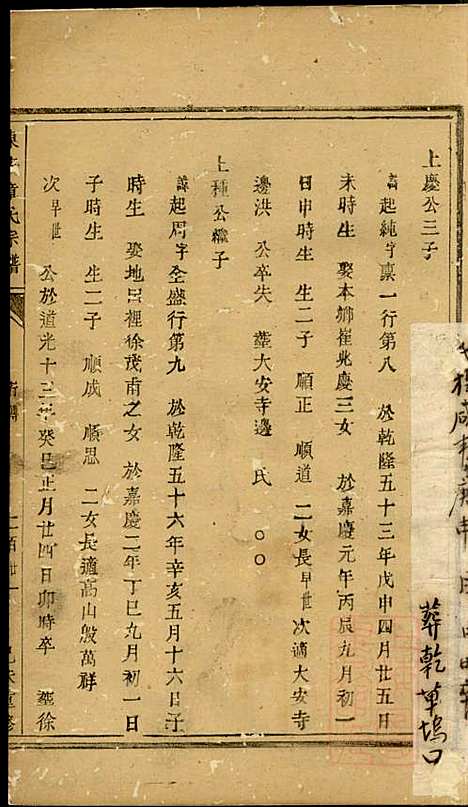 葬乾草塢口
上慶公三子
諱起純字稟一行第八 於乾隆五十三年戊申四月廿五日
未時生 娶本鄉崔兆慶三女 於嘉慶元年丙辰九月初一
日申時生 生二子 順正 順道 二女長早世次適大安寺
邊洪 公卒失 塟大安寺邊 氏 〇〇
上種公繼子
諱起周字全盛行第九 於乾隆五十六年辛亥五月十六日子
時生 娶地田裡徐茂甫之女 於嘉慶二年丁巳九月初一日
子時生 生二子 順成 順思 二女長適高山殷萬祥
次早世 公於道光十三年癸巳正月廿四日卯時卒 塟徐
章氏宗譜
重修